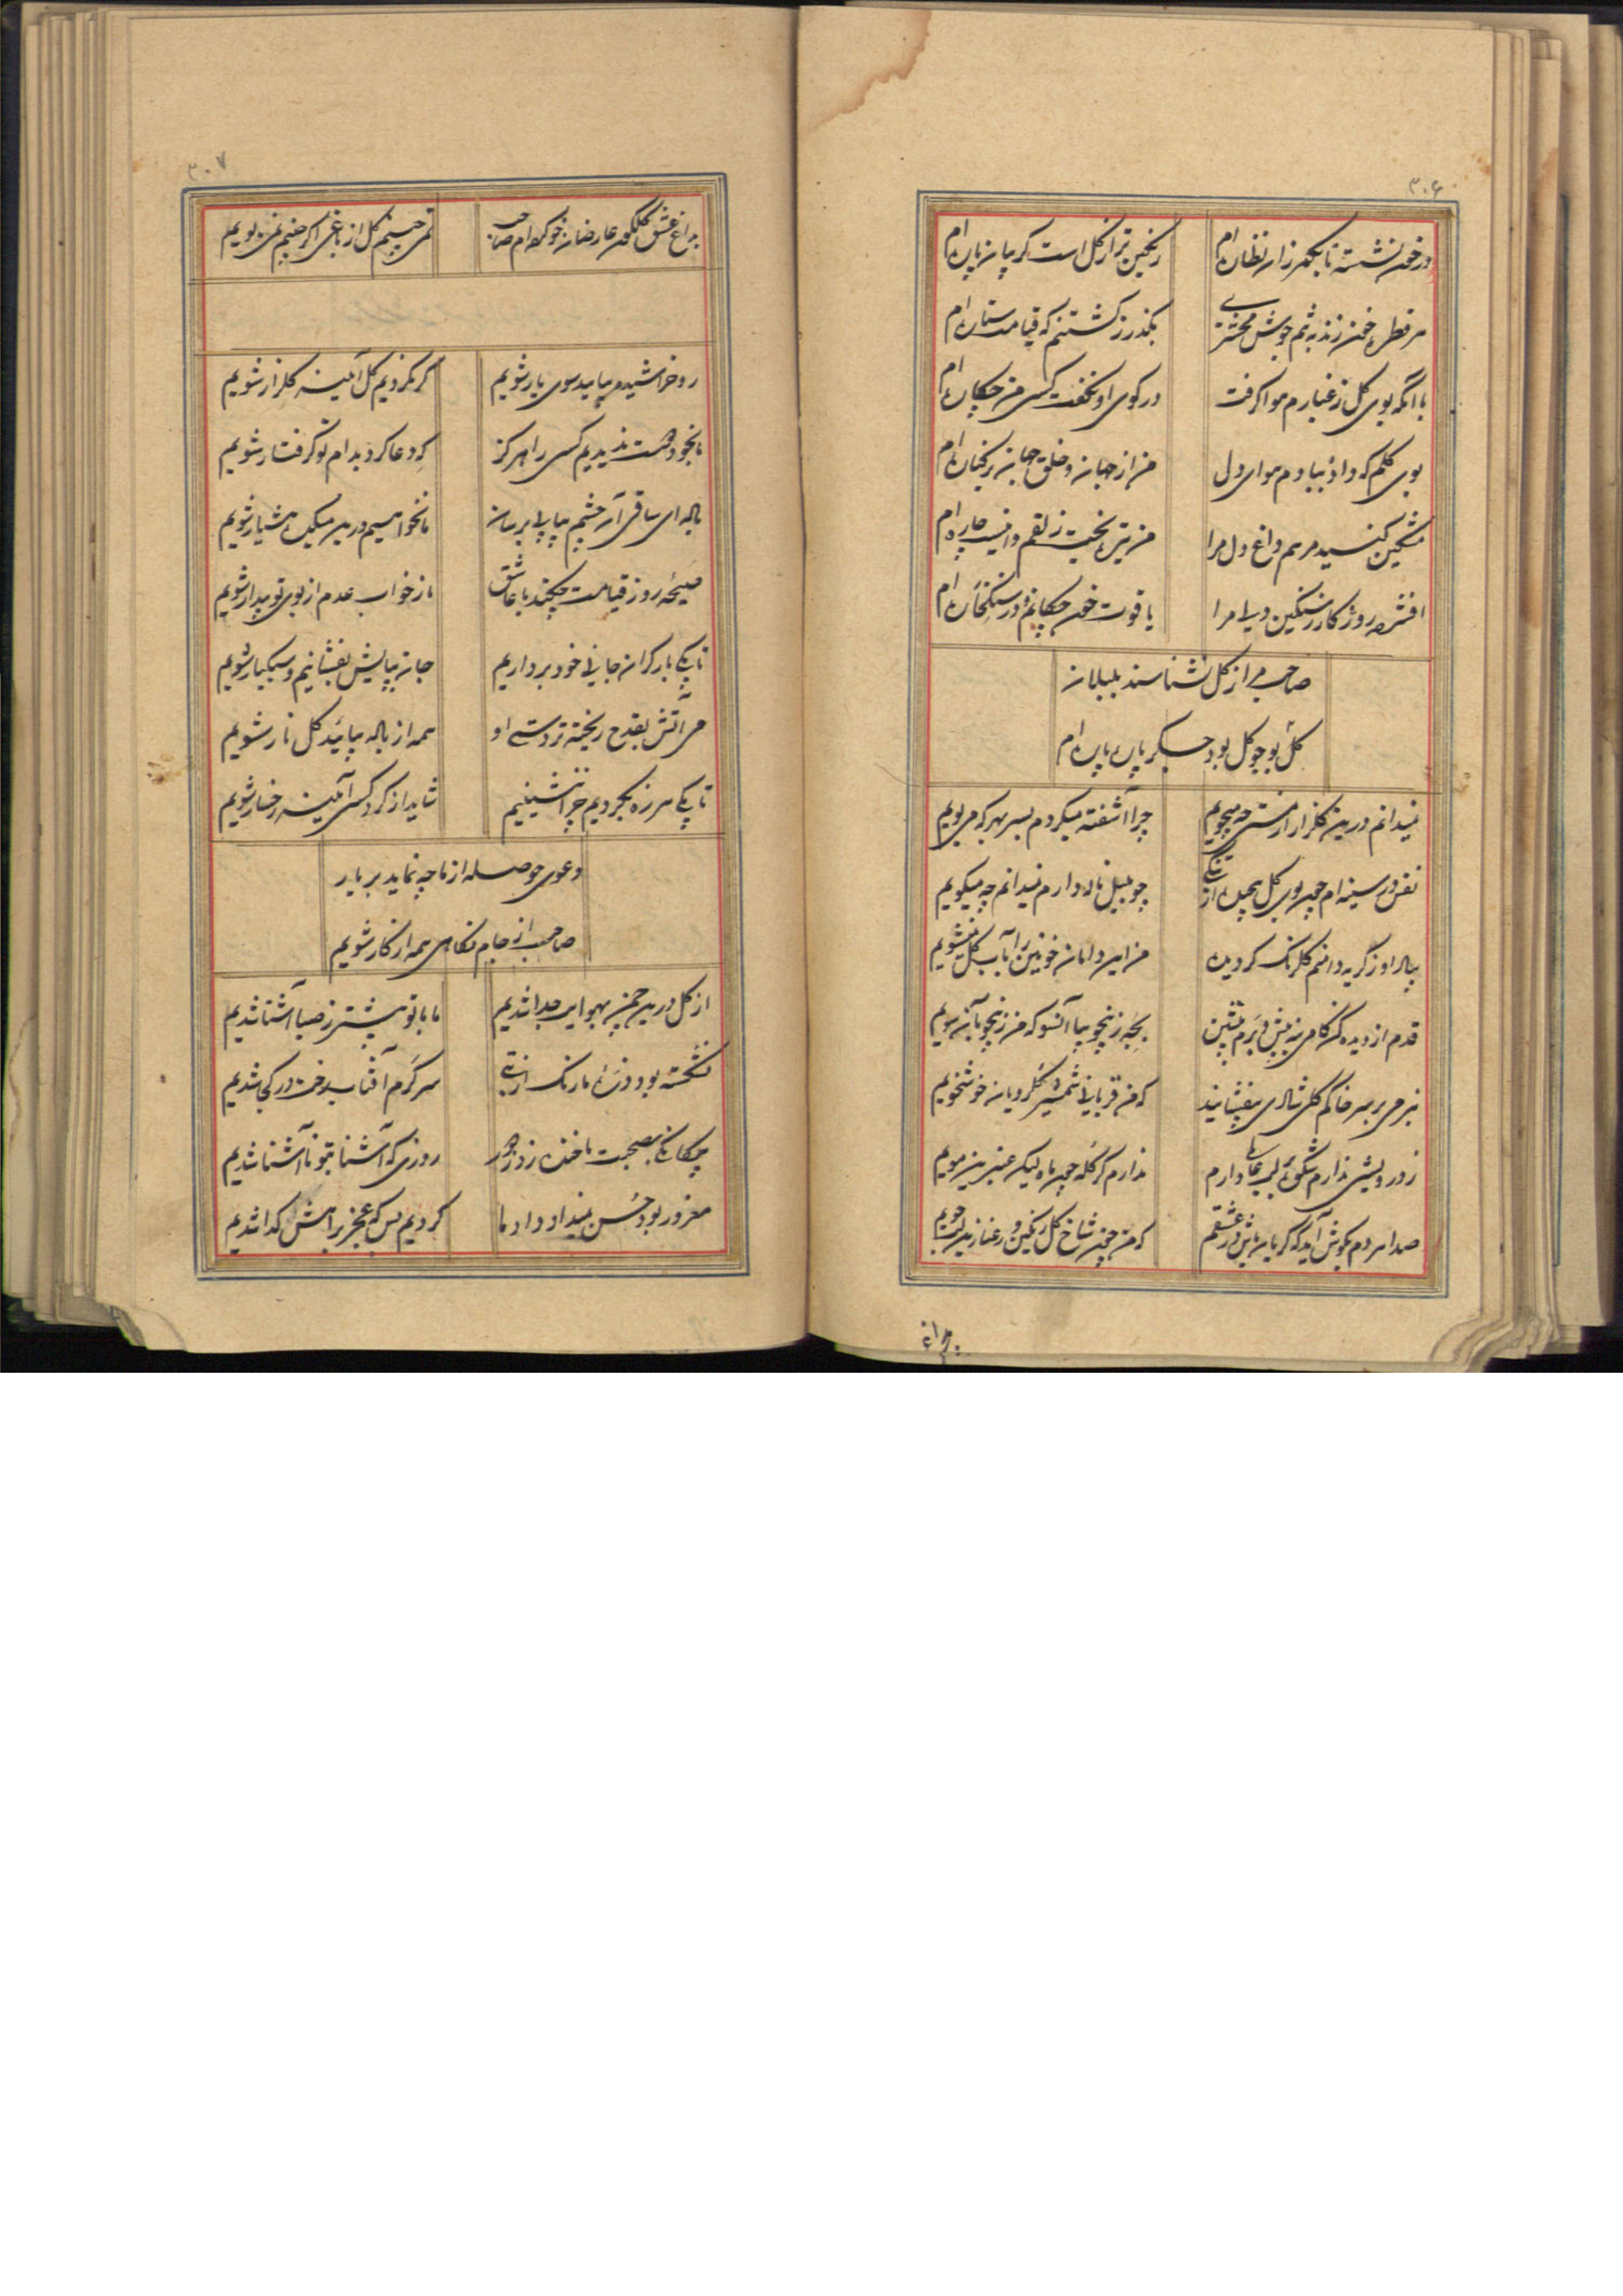 ۳۰۶
در خون نشسته تا بکمر زان نظاره ام
رنگین تر از گل است گریبان پاره ام
هر قطره خون زند به تنم جوش محشری
بگذر ز کشتنم که قیامت ستاره ام
با آنکه بوی گل ز غبارم هوا گرفت
در کوی او نگفت کسی من چکاره ام
بوی گلم که داد بیادم هوای دل
من از جهان و خلق جهان بر کناره ام
مشکین کنید مرهم داغ دل مرا
من تیره بخت زلفم و اینست چاره ام
افشرده روزگار ز سنگین دلی مرا
یاقوت خون چکانم و در سنگ خاره ام
صاحب مرا ز گل نشناسند بلبلان
گل بو چو گل بود جگر پاره پاره ام
نمیدانم درین گلزار از مستی چه میجویم
چرا آشفته میگردم بسر بهر که میپویم
نفس در سینه ام چون بوی گل پیچیده از تنگی
چو بلبل ناله دارم نمیدانم چه میگویم
بیاد او ز گریه دامنم گلرنگ گردیده
من این دامان خونین را بآب گل نمیشویم
قدم از دیده کن گامی نه پیش و برم بنشین
که من قربانی شمشیر گلرویان خوشخویم
ندارم گر کله چون ماه لیکن عنبرین مویم
صدا هر دم بگوش آید که گریان باش در عشقم
که من چون شاخ گل رنگین و رعنا زین لب جویم
بداغ
۳۰۷
بداغ عشق گلگون عارضان خو کرده ام صاحب
نمی چینم گل از باغی اگر چینم نمی بویم
رو خراشیده بیایید سوی یار شویم
گر نگردیم گل آئینه گلزار شویم
ما بخود دست ندیدیم کسی را هرگز
که دعا کرد بدام تو گرفتار شویم
ما نخواهیم درین میکده هشیار شویم
صیحه روز قیامت چکند با عاشق
ما ز خواب عدم از بوی تو بیدار شویم
تا بکی بار گران جانی خود برداریم
جان بپایش بفشانیم و سبکبار شویم
می آتش بقدح ریخته تردستی او
همه از باله بیائید گل نار شویم
تا بکی هرزه بگردیم چرا ننشینیم
شاید از گرد کسی آئینه رخسار شویم
دعوی حوصله از ما چه نماید بر یار
صاحب از جام نگاهی همه از کار شویم
از گل درین چمن بهوایت جدا شدیم
ما با تو بیشتر ز صبا آشنا شدیم
نشکسته بود وزن ما رنگ از بتی
سرگرم آفتاب رخت در کجا شدیم
بیگانگی بصحبت ما خنده زد ز دور
روزی که آشنا بتو ناآشنا شدیم
مغرور بود حسن نمیداد داد ما
کردیم بس که عجز براهش گدا شدیم